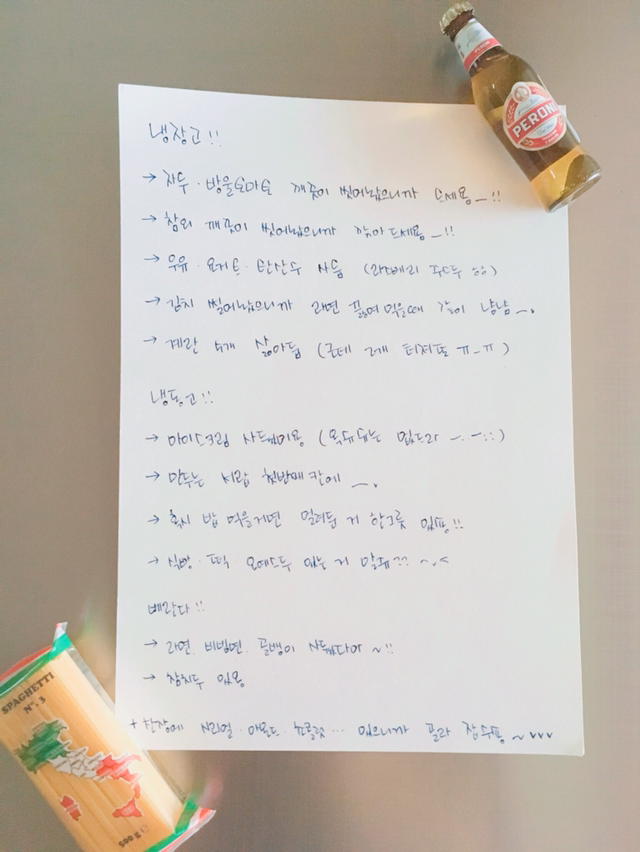 PERONI
냉장고!!
→ 자두·방울토마토 깨끗이 씻어놨으니까 드세용_!!
→ 참외 깨끗이 씻어놨으니까 깎아드세용_!!
→ 우유·요거트·탄산수 사둠 (라즈베리 주스두 ㅎㅎ)
→ 김치 썰어놨으니까 라면 끓여먹을때 같이 냠냠~.
→ 계란 4개 삶아둠 (근데 2개 터져또 ㅠ_ㅠ)
냉동고!!
→ 아이스크림 사두께미용 (옥듀듀는 없드라
→ 만두는 서랍 첫번째칸에 ~.
→ 혹시 밥 먹을거면 얼려둔 거 한그릇 있뜸!!
→ 식빵·떡 모에스두 있는 거 알쥬??
베란다!!
→ 라면. 비빔면. 골뱅이 사뒀다아~!!
→ 참치두 있용
+ 찬장에 시리얼·아몬드·초콜릿… 있으니까 골라 잡수숑~
SPAGHETTI
N°. 3
500 g e